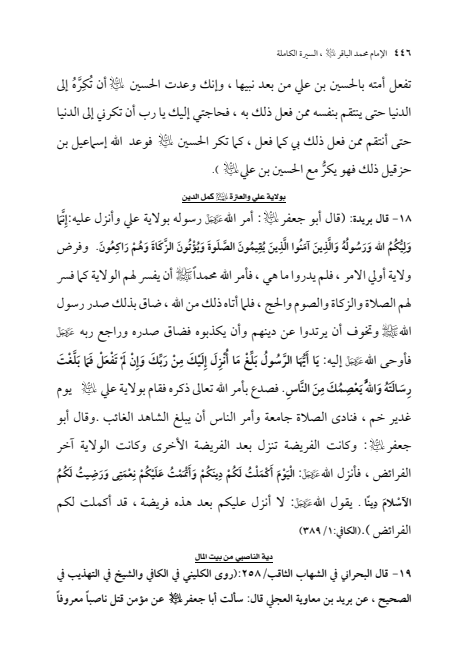 ٤٤٦ الإمام محمد الباقر ﵇ ، السيرة الكاملة
تفعل أمته بالحسين بن علي من بعد نبيها ، وإنك وعدت الحسين ﵇ أن تُكِرَّهُ إلى
الدنيا حتى ينتقم بنفسه ممن فعل ذلك به ، فحاجتي إليك يا رب أن تكرني إلى الدنيا
حتى أنتقم ممن فعل ذلك بي كما فعل ، كما تكر الحسين ﵇ فوعد الله إسماعيل بن
حزقيل ذلك فهو يكرُّ مع الحسين بن علي ﵇ ).
بولاية علي والعترة ﵈ كمل الدين
١٨- قال بريدة: (قال أبو جعفر ﵇ : أمر الله ﷿ رسوله بولاية علي وأنزل عليه: إِنَّمَا
وَلِيُّكُمُ الله وَرَسُولُهُ وَالَّذِينَ آمَنُوا الَّذِينَ يُقِيمُونَ الصَّلَوةَ وَيُؤْتُونَ الزَّكَاةَ وَهُمْ رَاكِعُونَ. وفرض
ولاية أولي الامر ، فلم يدروا ما هي ، فأمر الله محمداً ﷺ أن يفسر لهم الولاية كما فسر
لهم الصلاة والزكاة والصوم والحج ، فلما أتاه ذلك من الله ، ضاق بذلك صدر رسول
الله ﷺ وتخوف أن يرتدوا عن دينهم وأن يكذبوه فضاق صدره وراجع ربه ﷿
فأوحى الله ﷿ إليه: يَا أَيُّهَا الرَّسُولُ بَلِّغْ مَا أُنْزِلَ إِلَيْكَ مِنْ رَبِّكَ وَإِنْ لَمْ تَفْعَلْ فَمَا بَلَّغْتَ
رِسَالَتَهُ وَاللهُ يَعْصِمُكَ مِنَ النَّاسِ. فصدع بأمر الله تعالى ذكره فقام بولاية علي ﵇ يوم
غدير خم ، فنادى الصلاة جامعة وأمر الناس أن يبلغ الشاهد الغائب .وقال أبو
جعفر ﵇ : وكانت الفريضة تنزل بعد الفريضة الأخرى وكانت الولاية آخر
الفرائض ، فأنزل الله ﷿: الْيَوْمَ أَكْمَلْتُ لَكُمْ دِينَكُمْ وَأَتْمَمْتُ عَلَيْكُمْ نِعْمَتِي وَرَضِيتُ لَكُمُ
الآسْلامَ دِينًا . يقول الله ﷿: لا أنزل عليكم بعد هذه فريضة ، قد أكملت لكم
الفرائض ).(الكافي:١/ ٣٨٩)
دية الناصبي من بيت المال
١٩- قال البحراني في الشهاب الثاقب/٢٥٨: (روى الكليني في الكافي والشيخ في التهذيب في
الصحيح ، عن بريد بن معاوية العجلي قال: سألت أبا جعفر ﵇ عن مؤمن قتل ناصباً معروفاً